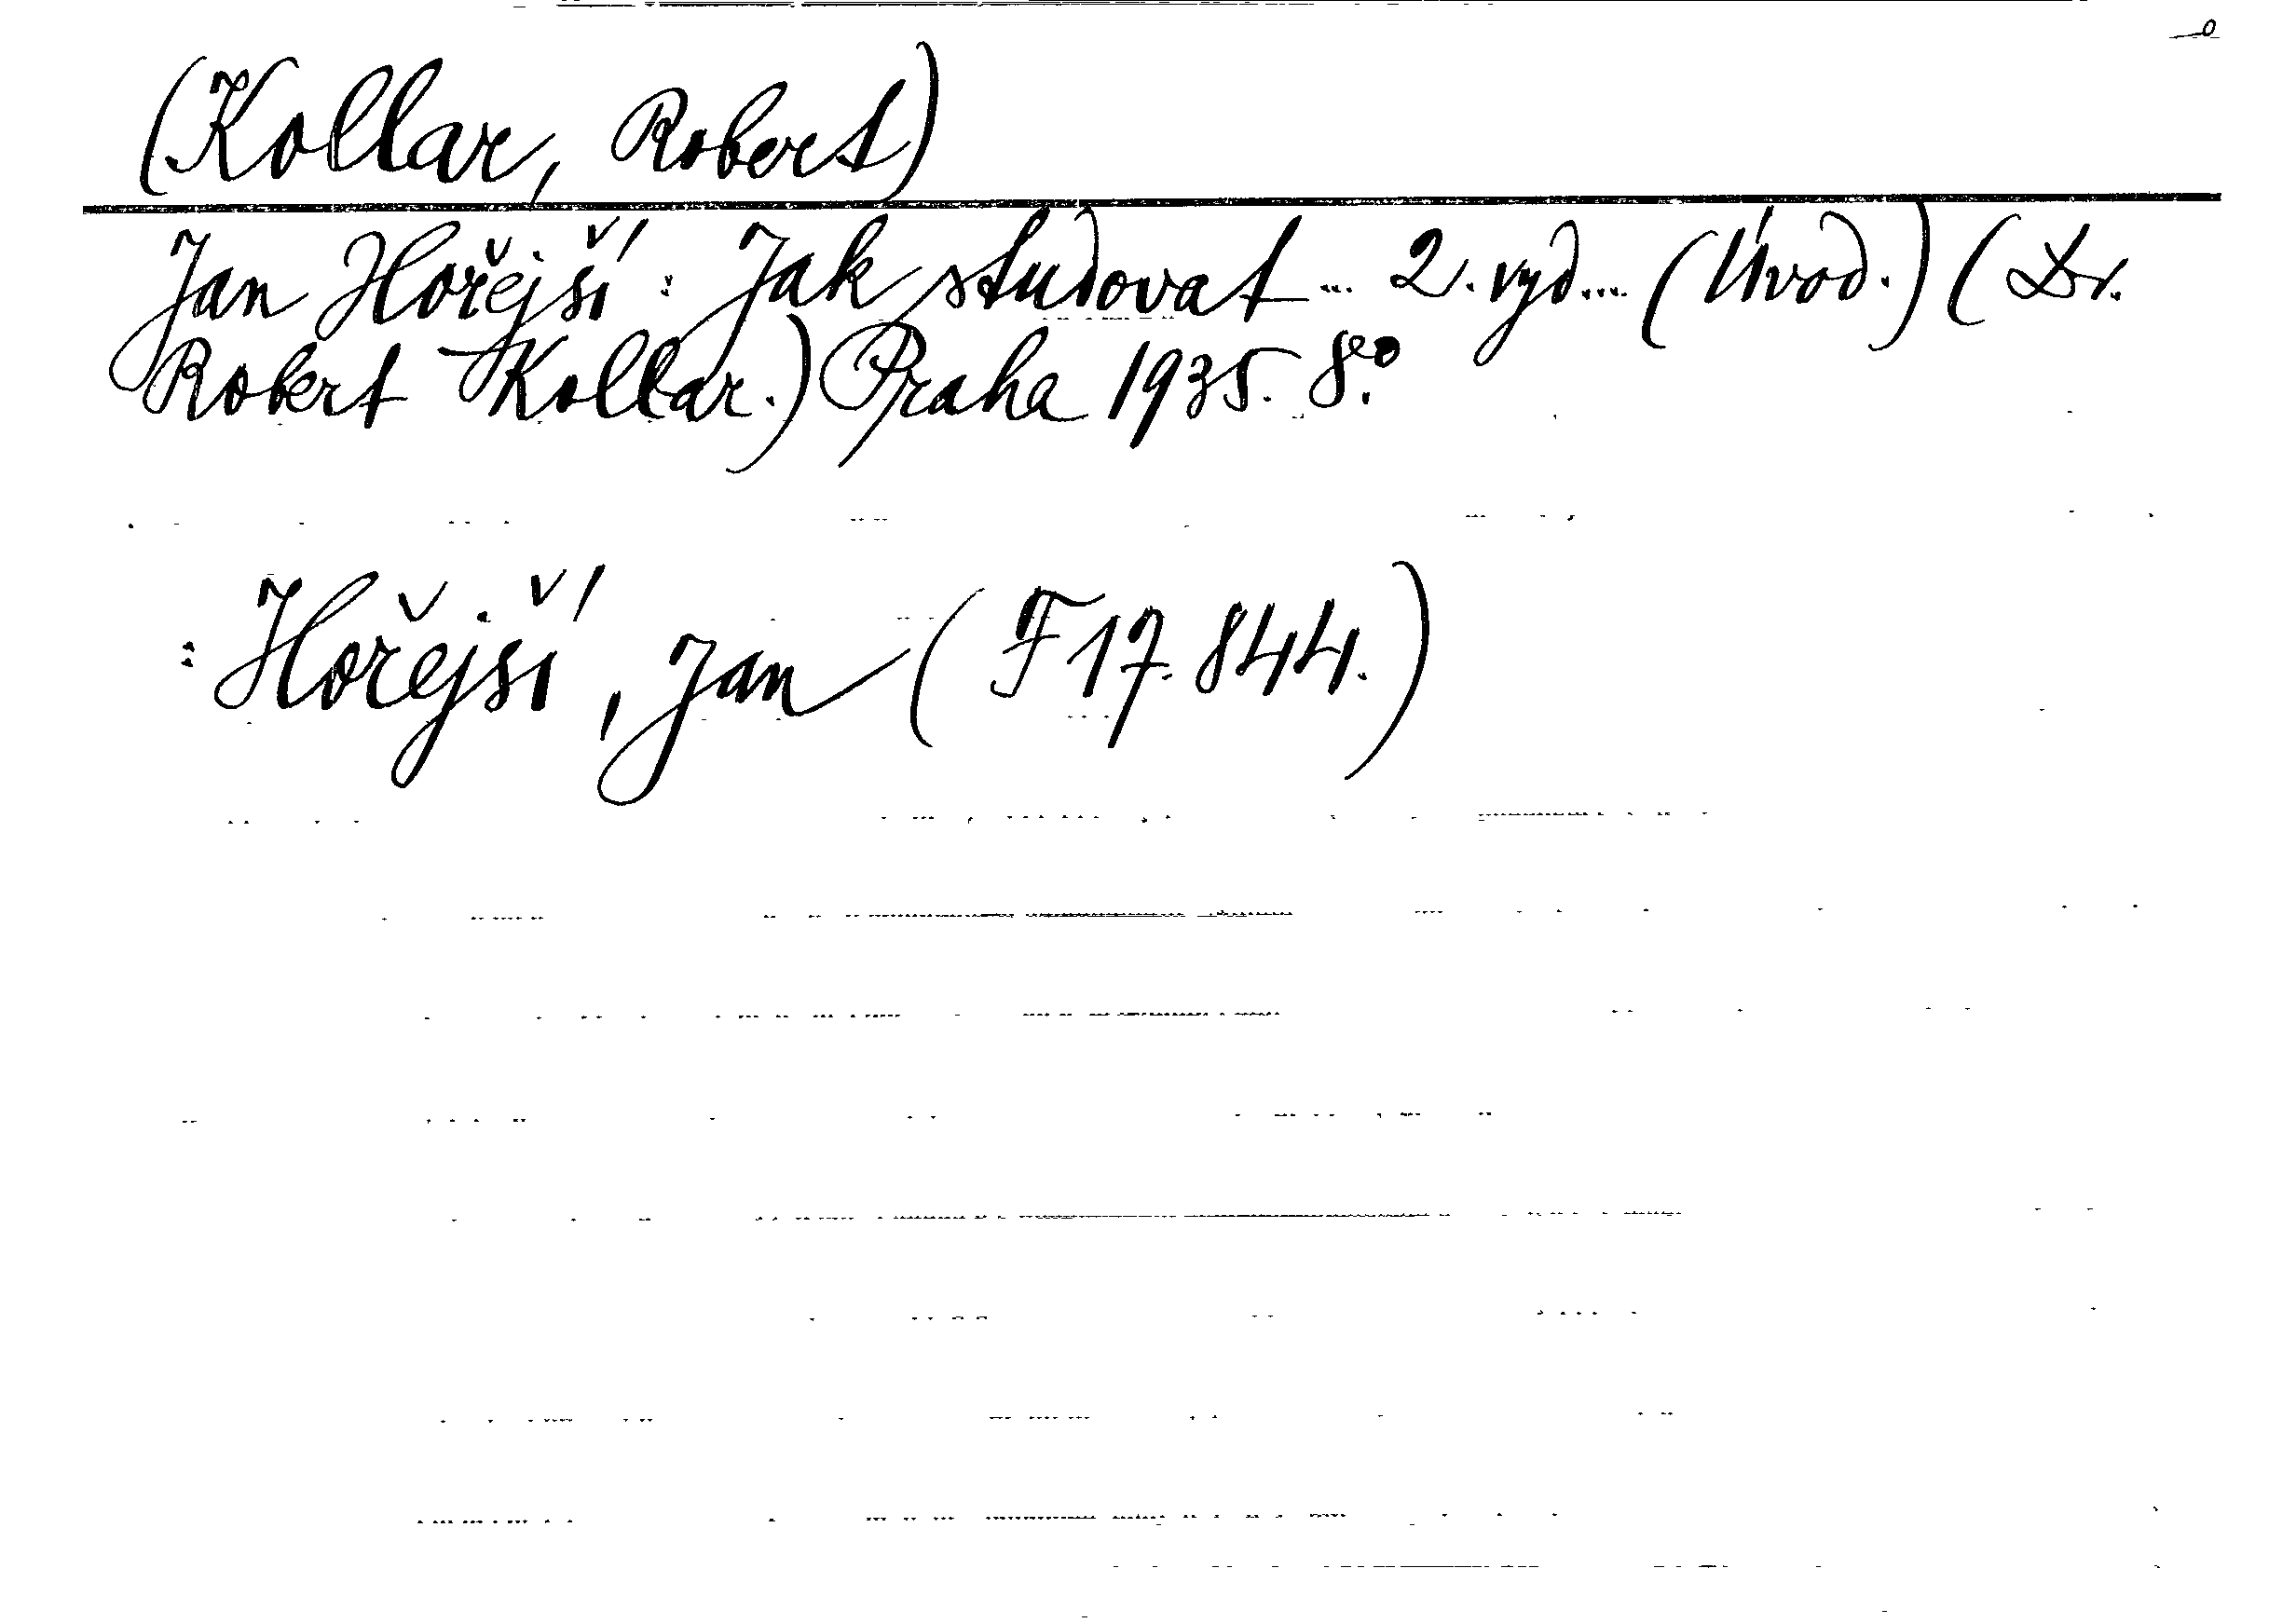 (Kollar, Robert)
Jan Hořejší: Jak studovat... 2. vyd... (Úvod.) (Dr.
Robert Kollar.) Praha 1935. 8°.
: Hořejší, Jan (F 17.844.)